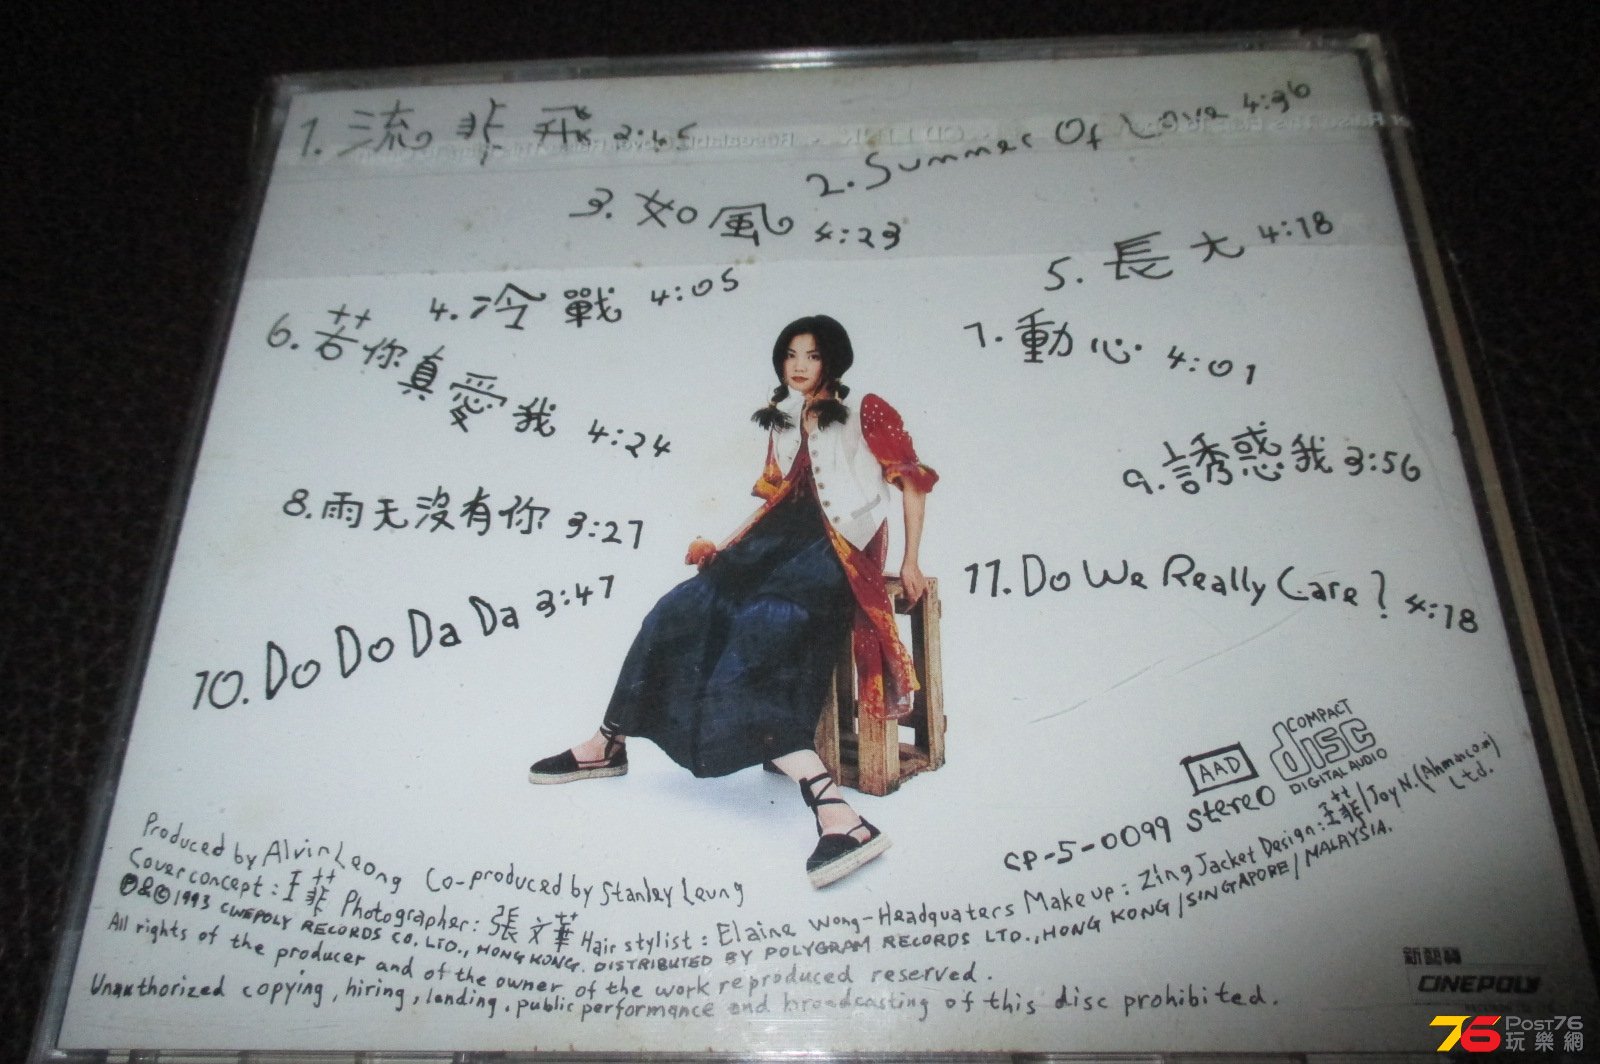 1. 流非飛 3:45
2. Summer Of Love 4:36
3. 如風 4:23
4. 冷戰 4:05
5. 長大 4:18
6. 若你真愛我 4:24
7. 動心 4:01
8. 雨天沒有你 3:27
9. 誘惑我 3:56
10. Do Do Da Da 3:47
11. Do We Really Care? 4:18
AAD
COMPACT
disc
DIGITAL AUDIO
CP-5-0099 stereo
Produced by Alvin Leong Co-produced by Stanley Leung
Cover concept: 王菲 Photographer: 張文華 Hair stylist: Elaine Wong-Headquaters Make up: Zing Jacket Design: 王菲/Joy N.
Ltd.
℗&©1993 CINEPOLY RECORDS CO. LTD., HONG KONG. DISTRIBUTED BY POLYGRAM RECORDS LTD., HONG KONG/SINGAPORE/MALAYSIA.
All rights of the producer and of the owner of the work reproduced reserved.
Unauthorized copying, hiring, lending, public performance and broadcasting of this disc prohibited.
新藝寶
CINEPOLY
76 Post76
玩樂網